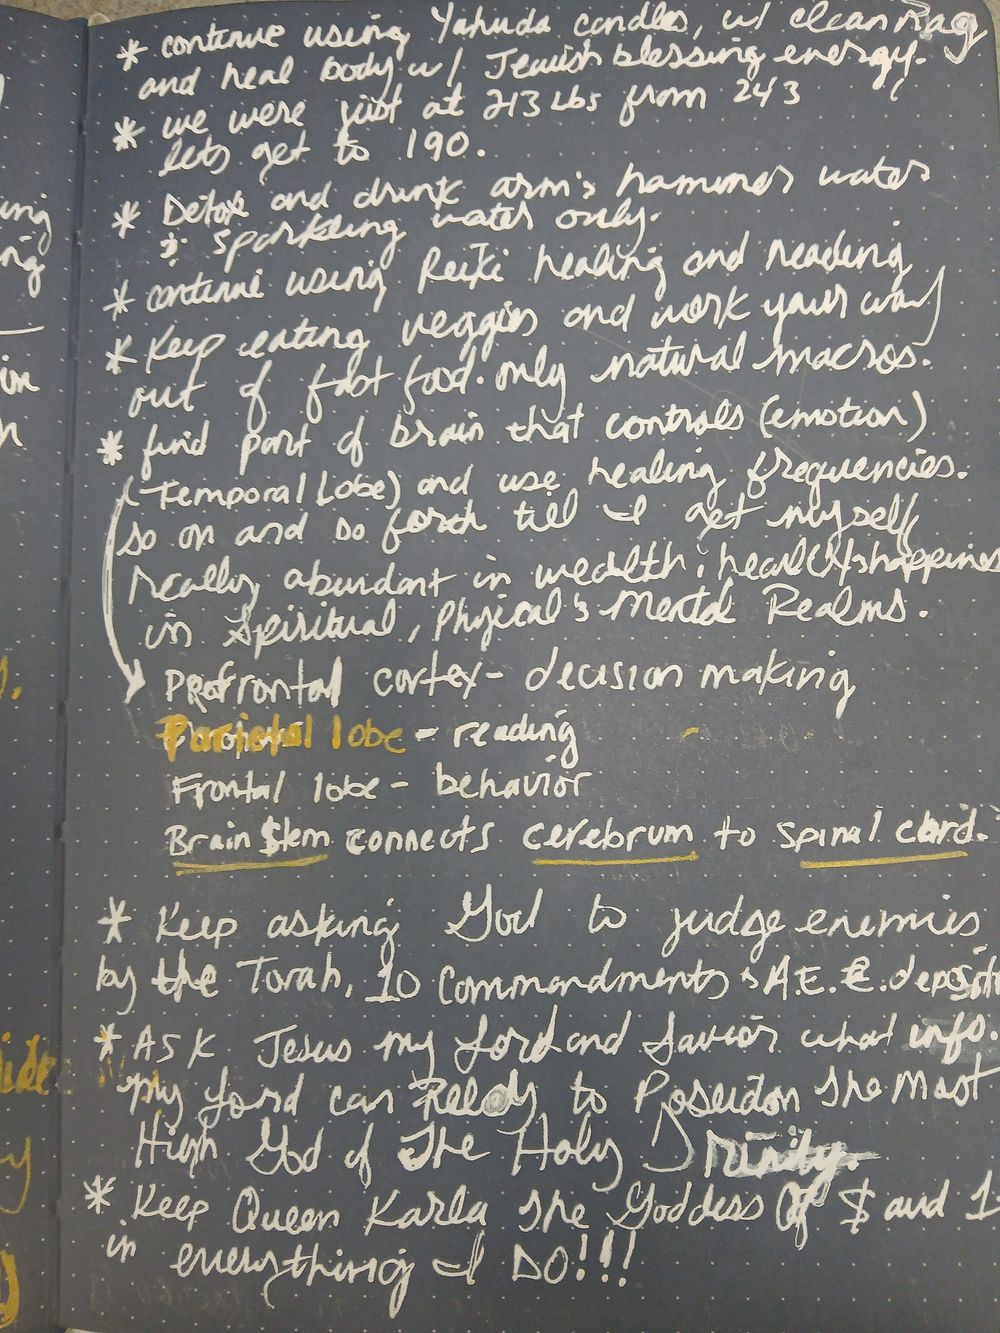 * continue using Yahuda candles, w/ clean rag
and heal body w/ Jewish blessing energy.
* we were just at 213 lbs from 243
lets get to 190.
* Detox and drink arm's hammer water
& sparkling water only.
* continue using Reiki healing and reading
* Keep eating veggies and work your way
out of fast food. only natural macros.
* find part of brain that controls (emotion)
(Temporal Lobe) and use healing frequencies.
so on and so forth till I get myself
really abundant in wealth, health & happiness
in Spiritual, Physical & Mental Realms.
Prefrontal cortex - decision making
Parietal lobe - reading
Frontal lobe - behavior
Brain Stem connects cerebrum to spinal cord.
* Keep asking God to judge enemies
by the Torah, 10 Commandments & A.E.E. deposit
* Ask Jesus my Lord and Savior what info.
my Lord can to Poseidon The Most
High God of The Holy Trinity.
* Keep Queen Karla The Goddess Of $ and 1
in everything I DO!!!
ing
ng
im
n
ide
y